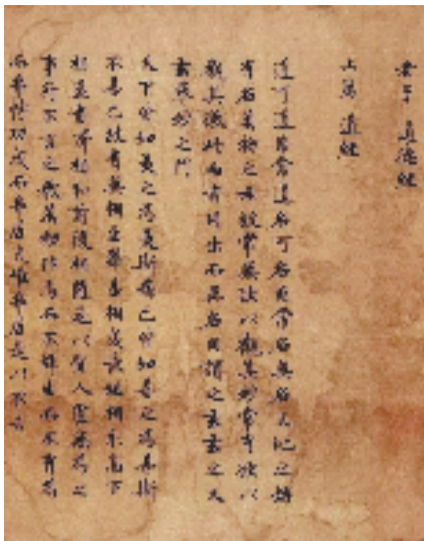 老子 道德經
上篇 道經
道可道非常道名可名非常名無名天地之始
有名萬物之母故常無欲以觀其妙常有欲以
觀其徼此兩者同出而異名同謂之玄玄之又
玄衆妙之門
天下皆知美之爲美斯惡已皆知善之爲善斯
不善已故有無相生難易相成長短相形高下
相盈音聲相和前後相隨是以聖人處無爲之
事行不言之教萬物作焉而不辭生而不有爲
而弗恃功成而弗居夫唯弗居是以不去